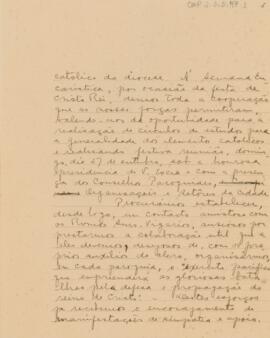 catolico da diocese. A' Semana Eu-
caristica, por ocasião da festa de
Cristo Rei, demos toda a cooperação
que as nossas forças permitiram,
valendo-nos da oportunidade para a
realização de circulos de estudos para
a generalidade dos elementos catolicos
e realizando festiva reunião, domin-
go, dia 27 de outubro, sob a honrosa
presidencia de V. Excia e com a presen-
ça dos Conselhos Paroquiais,
Organisações e
Procurámos estabelecer,
desde logo, um contacto amistoso com
os Revmos Snrs. Vigarios, ansiosos por
prestarmos a colaboração util que
eles devemos, desejosos de, com o pro-
prio auxilio do clero, organisarmos,
em cada paroquia, o exercito pacifico
que empreenderá as gloriosas bata-
lhas pela defesa e propagação do
reino de Cristo. Nestes esforços
já recebemos o encorajamento de
manifestações de simpatia e apoio.